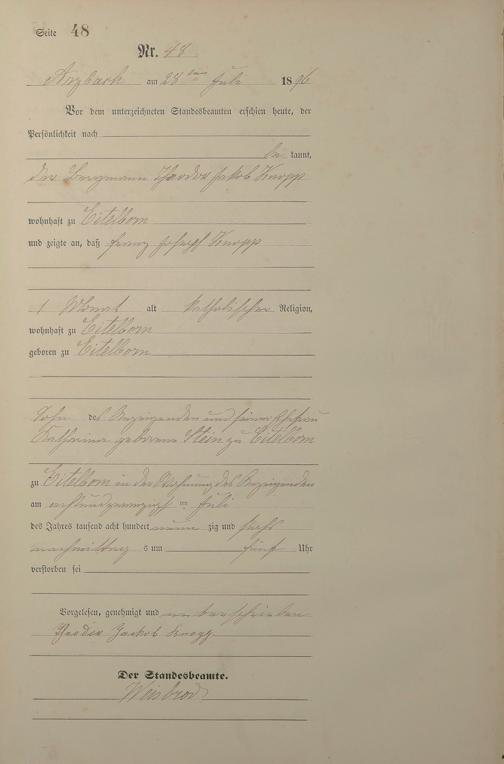 Seite 48
Nr. 48
Arzbach am 28ten Juli 1896
Vor dem unterzeichneten Standesbeamten erschien heute, der
Persönlichkeit nach
be kannt,
der Bergmann Theodor Jakob Knopp
wohnhaft zu Eitelborn
und zeigte an, daß Franz Joseph Knopp
1 Monat alt katholischer Religion,
wohnhaft zu Eitelborn
geboren zu Eitelborn
Sohn des Anzeigenden und seiner Ehefrau
Katharina geborene Stein zu Eitelborn
zu Eitelborn in der Wohnung des Anzeigenden
am achtundzwanzigsten Juli
des Jahres tausend acht hundert neun zig und sechs
nachmittags um fünf Uhr
verstorben sei
Vorgelesen, genehmigt und unterschrieben
Theodor Jackob Knopp
Der Standesbeamte.
Weisbrod